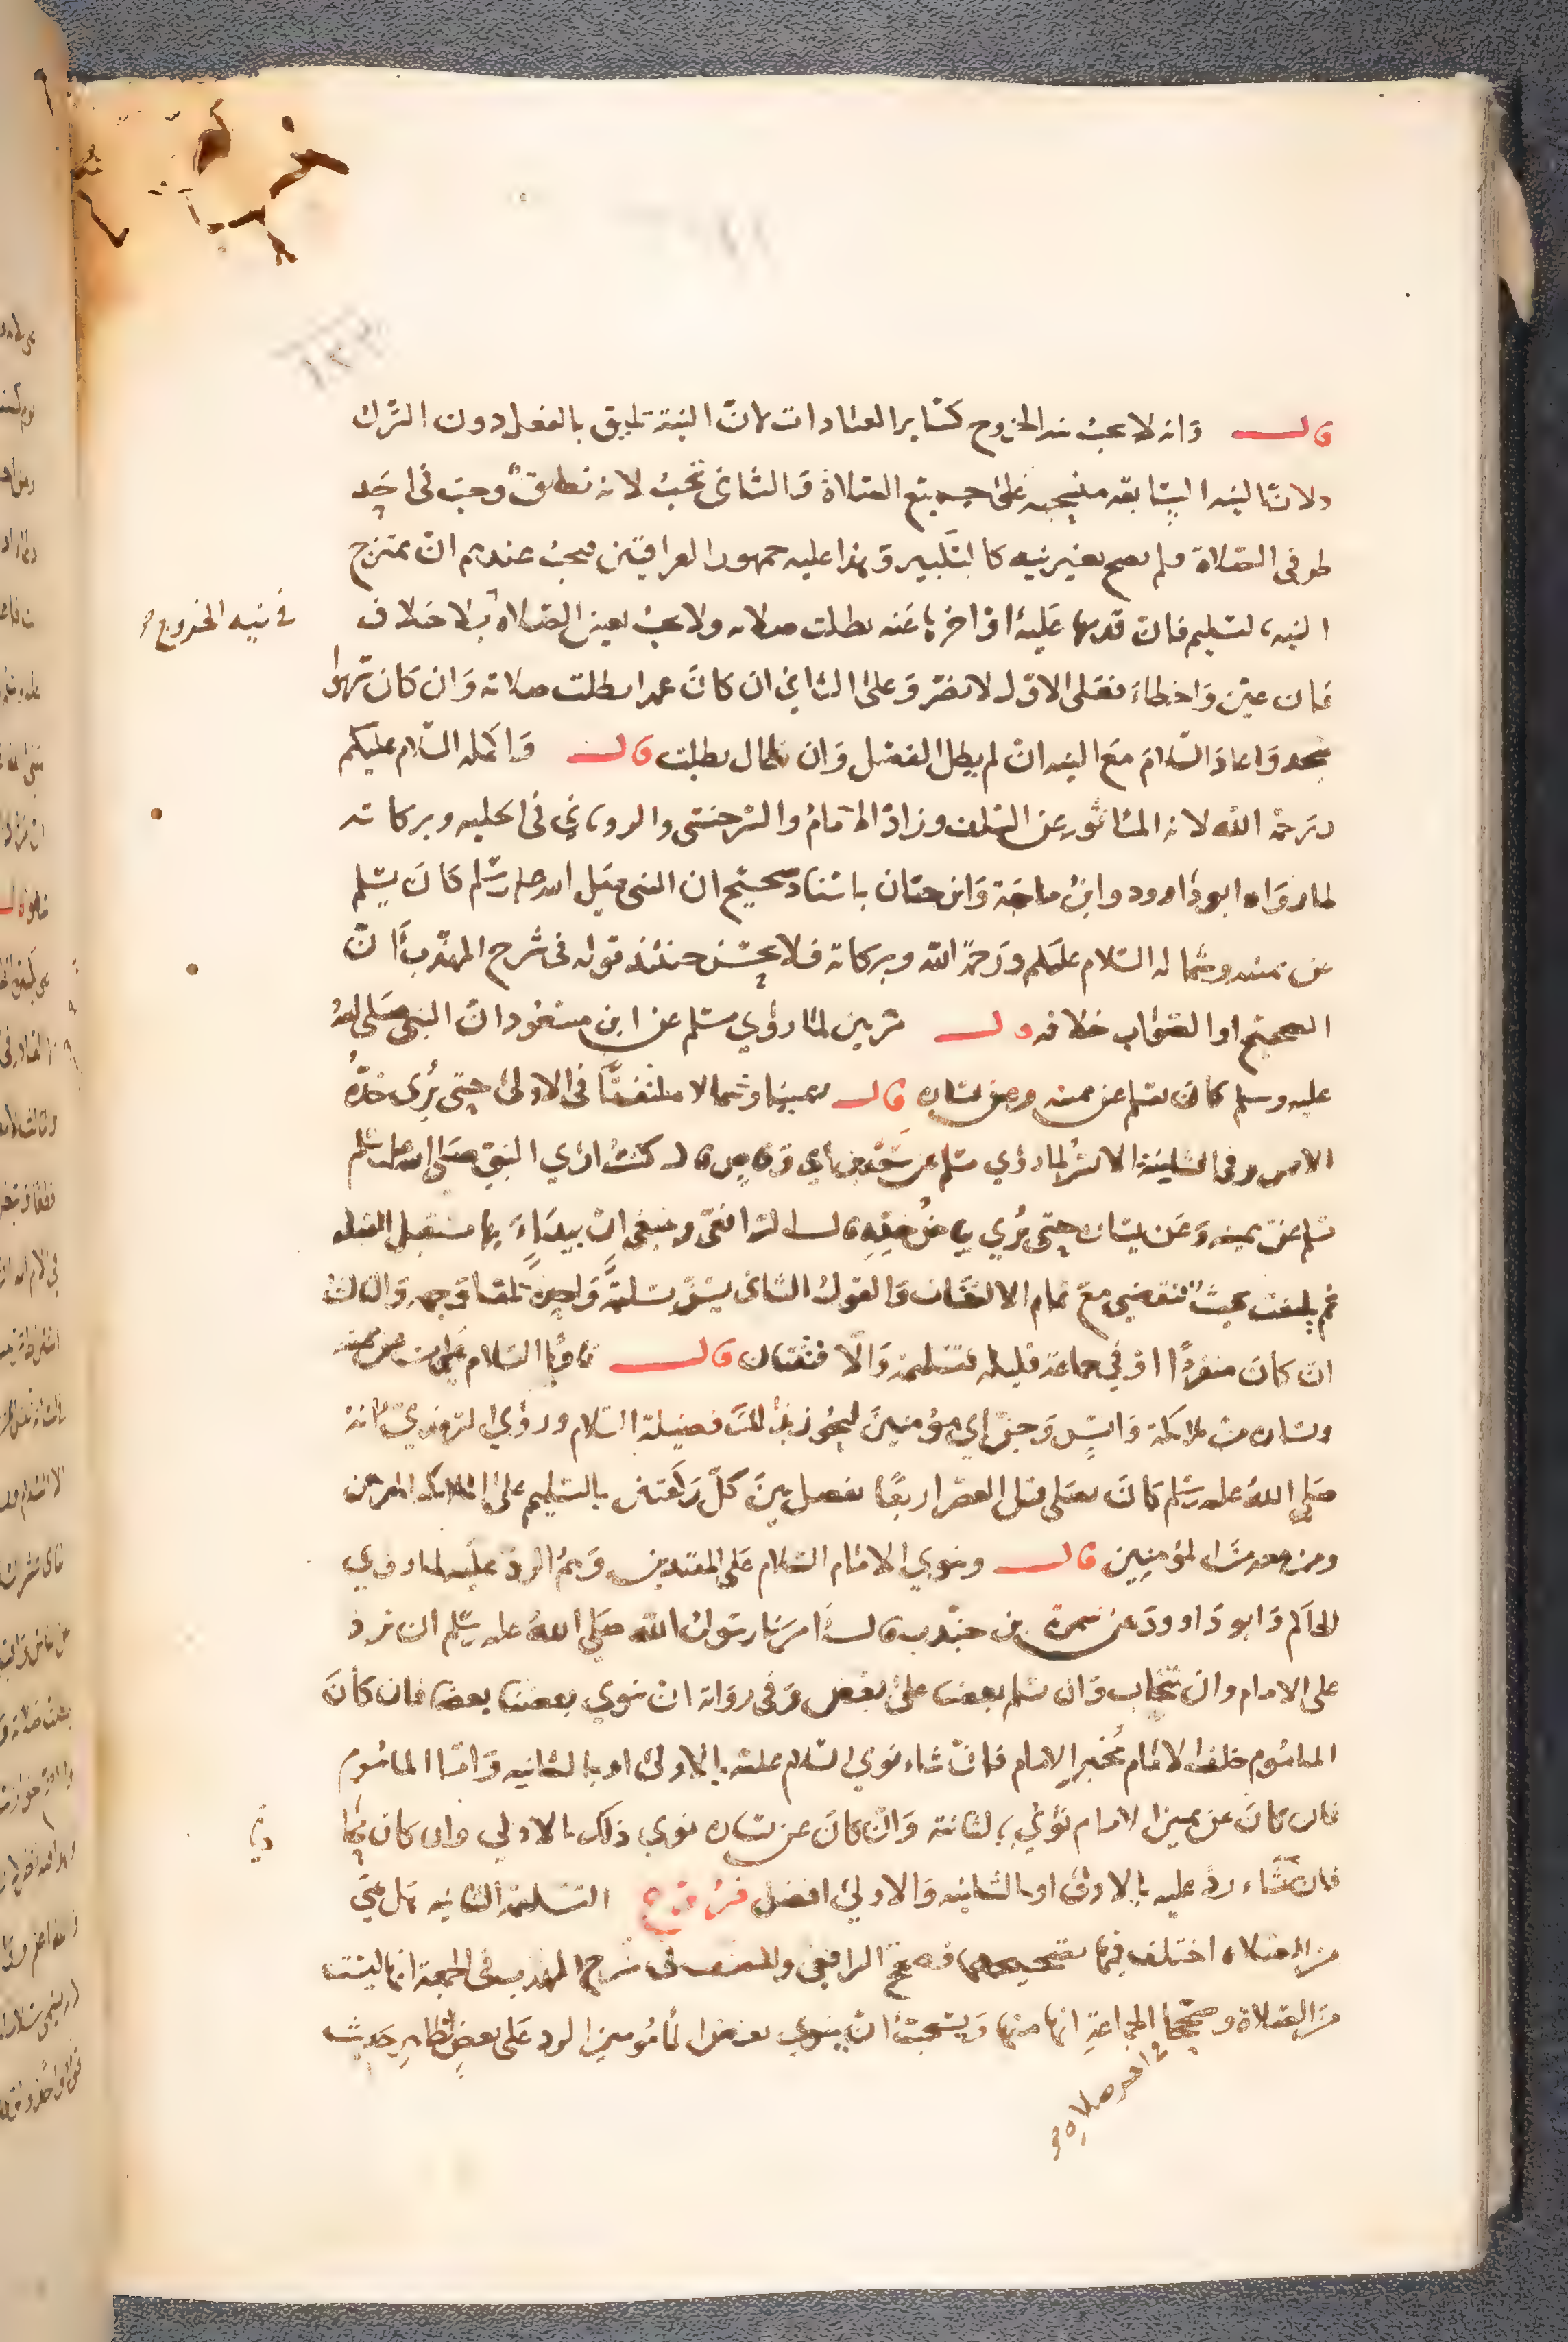 قال وانه لا يجب نيه الخروج كسائر العبادات لان النية تليق بالفعل دون الترك
ولان النيه السابقه منسحبه على جميع الصلاة والثاني تجب لانه نطق وجب في احد
طرفي الصلاة فلم يصح بغير نيه كالتكبير وهذا عليه جمهور العراقيين فيجب عندهم ان تمتزج
النيه بالتسليم فان قدمها عليه او اخرها عنه بطلت صلاته ولا يجب تعيين الصلاة بلا خلاف
في نيه الخروج
فان عين واخطاء فعلى الاول لا يضر وعلى الثاني ان كان عمدا بطلت صلاته وان كان سهوا
سجد واعاد السلام مع النيه ان لم يطل الفصل وان طال بطلت قال واكمله السلام عليكم
ورحمة الله لانه الماثور عن السلف وزاد الامام والسرخسي والروياني في الحليه وبركاته
لما رواه ابو داود وابن ماجة وابن حبان باسناد صحيح ان النبي صلى الله عليه وسلم كان يسلم
عن يمينه وشماله السلام عليكم ورحمة الله وبركاته فلا يحسن حينئذ قوله في شرح المهذب ان
الصحيح او الصواب خلافه قال مرتين لما روي مسلم عن ابن مسعود ان النبي صلى الله
عليه وسلم كان يسلم عن يمينه وعن يساره قال يمينا وشمالا ملتفتا في الاولى حتى يرى خده
الايمن وفي الثانية الايسر لما روي مسلم عن سعد بن ابي وقاص قال كنت اري النبي صلى الله عليه وسلم
يسلم عن يمينه وعن يساره حتى يري بياض خده قال الرافعي وينبغي ان يبداء بها مستقبل القبله
ثم يلتفت بحيث تنقضي مع تمام الالتفات والقول الثاني يسن تسليمة واحدة تلقا وجهه والثالث
ان كان منفردا او في جماعة قليله فتسليمة والا فثنتان قال ناويا السلام على من عن يمينه
ويساره من ملائكة وانس وجن اي مؤمنين ليحوز بذلك فضيلة السلام وروي الترمذي انه
صلى الله عليه وسلم كان يصلى قبل العصر اربعا يفصل بين كل ركعتين بالتسليم على الملائكه المقربين
ومن معه من المؤمنين قال وينوي الامام السلام على المقتدين وهم الرد عليه لما روي
الحاكم وابو داوود عن سمرة بن جندب قال امرنا رسول الله صلى الله عليه وسلم ان نرد
على الامام وان نتحاب وان يسلم بعضنا على بعض وفي رواية ان ينوي بعضنا بعضا فان كان
الماموم خلف الامام تخير الامام فان شاء نوي السلام عليه بالاولى او بالثانيه واما الماموم
فان كان عن يمين الامام نوي بالثانية وان كان عن يساره نوي ذلك بالاولي وان كان
فان شاء رد عليه بالاولى او بالثانيه والاولى افضل فرع التسليمة الثانيه هل هي
من الصلاه اختلف فيها فصحح الرافعي والمصنف في شرح المهذب في الجمعة انها ليست
من الصلاة وصححا في اخر صلاة الجماعة انها منها ويستحب ان ينوي بعض المامومين الرد على بعض لظاهر حديث